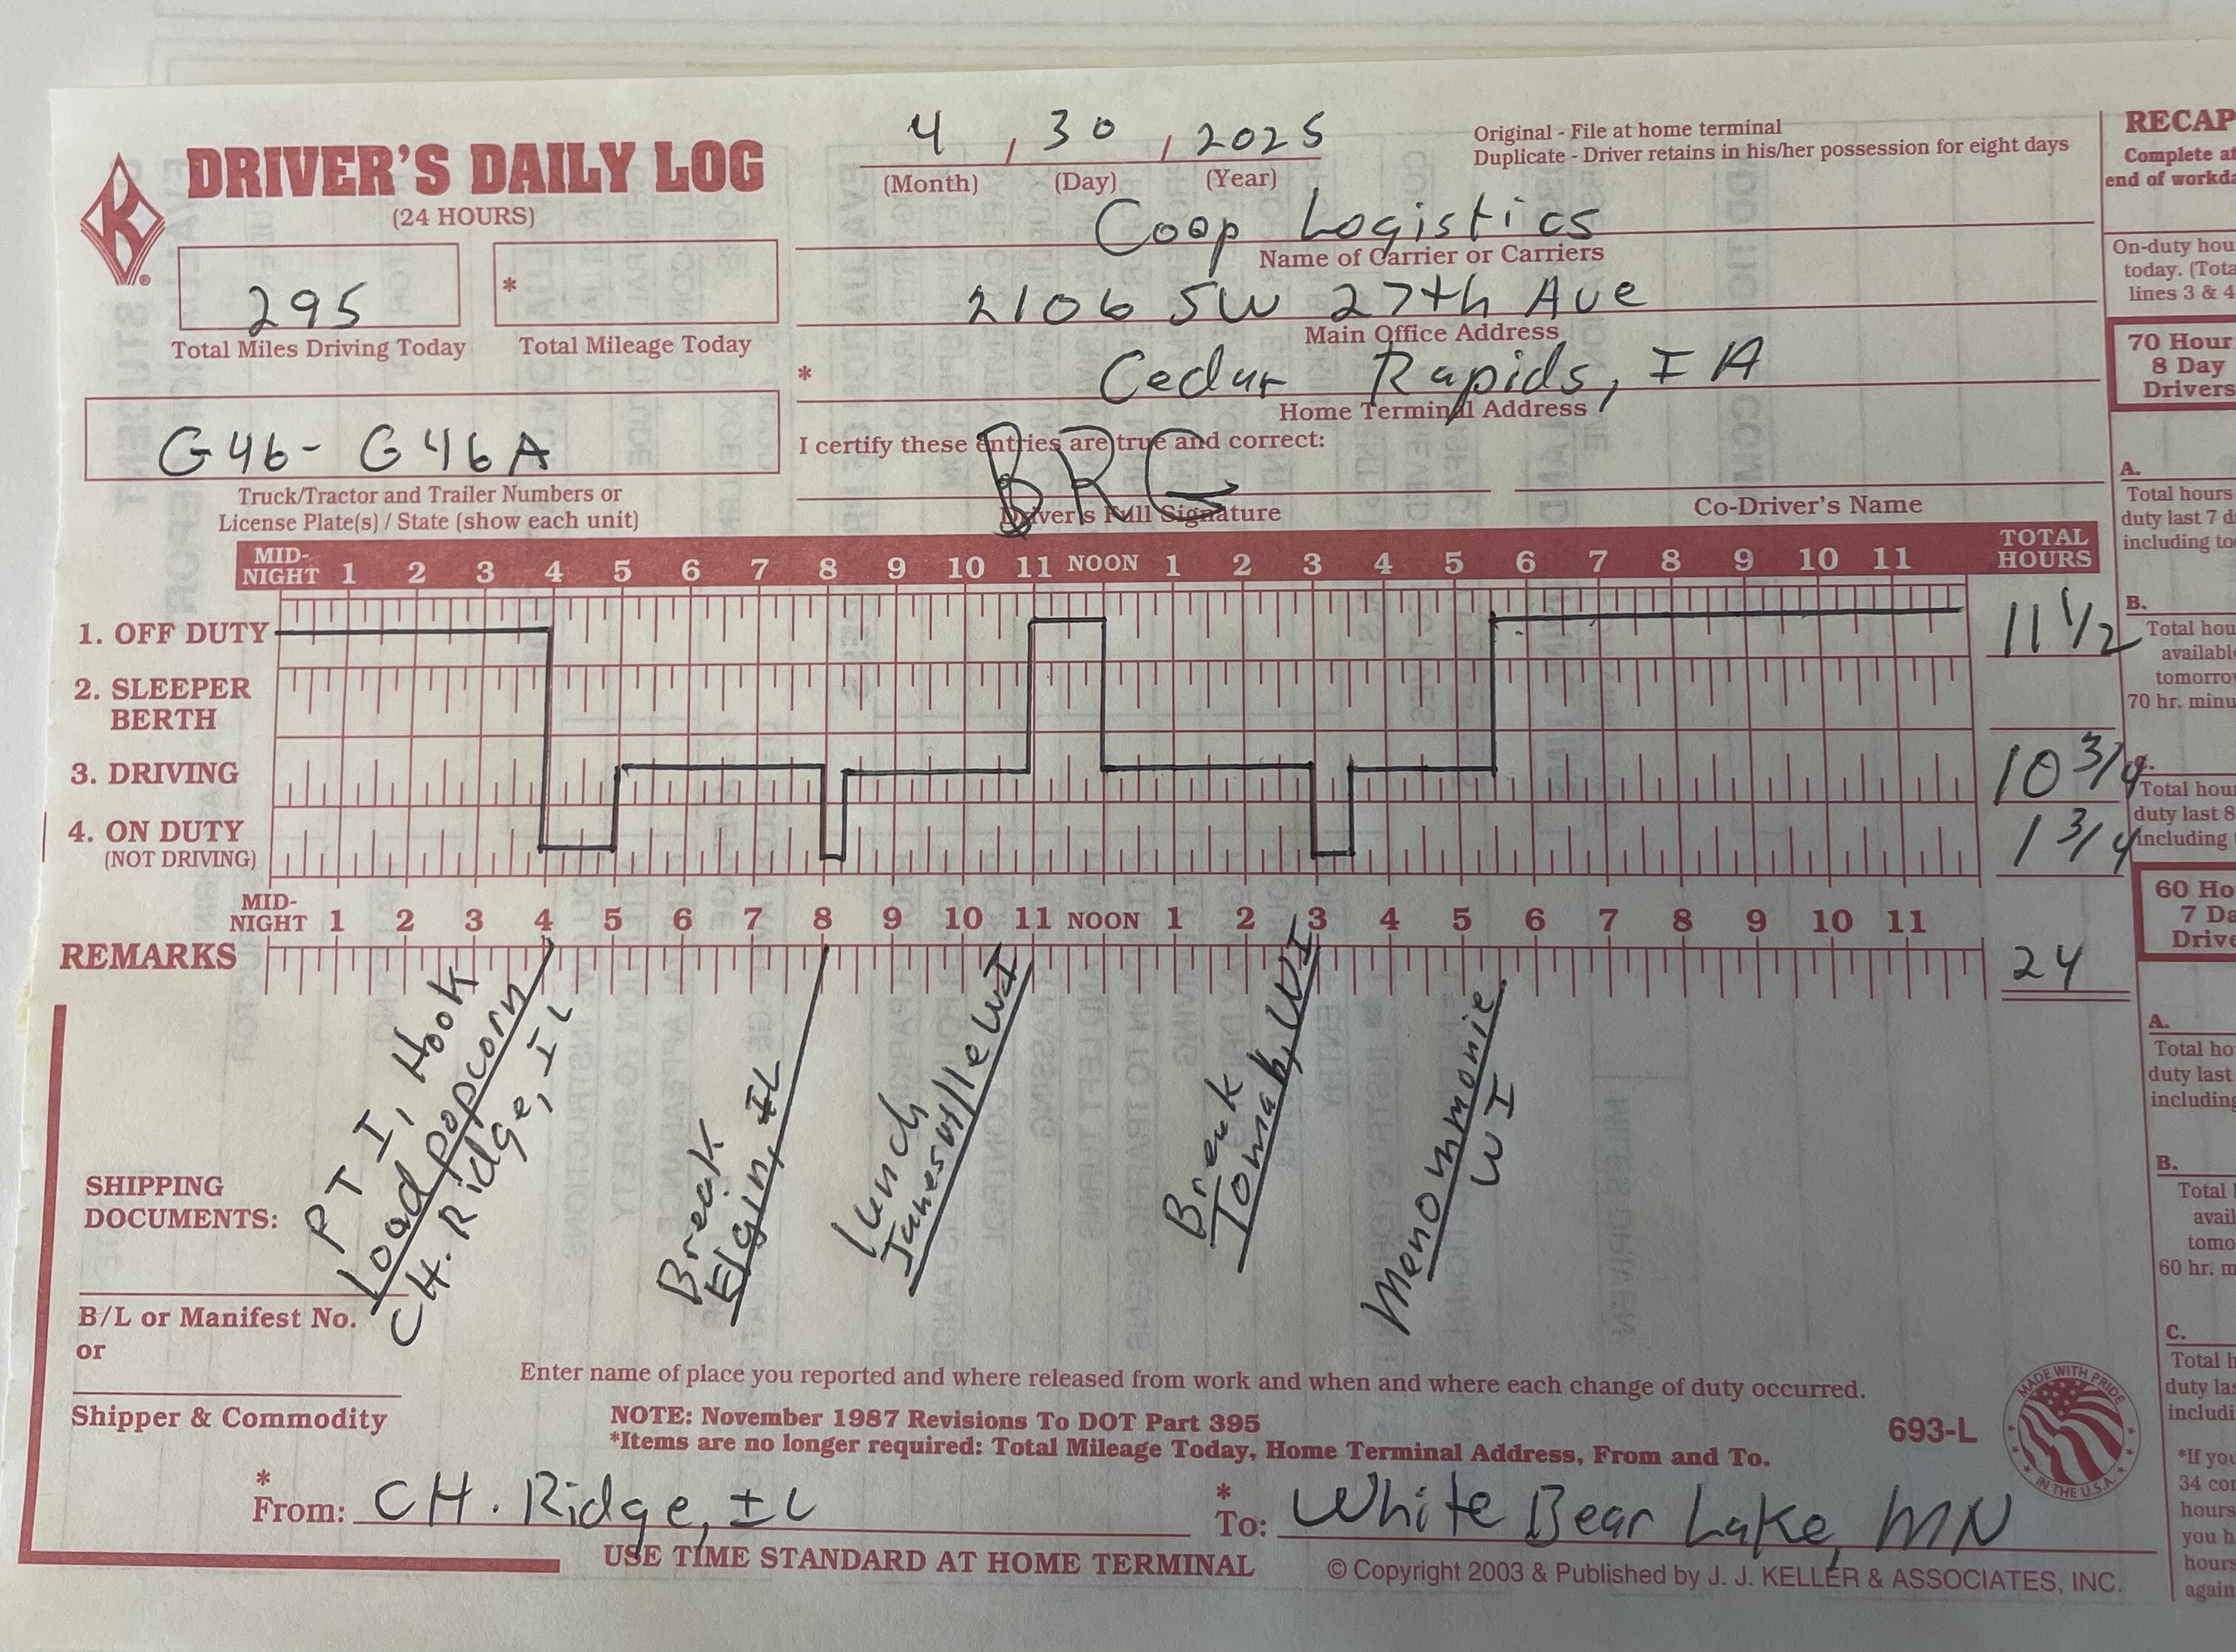 4 , 30 , 2025
(Month) (Day) (Year)
Original - File at home terminal
Duplicate - Driver retains in his/her possession for eight days
DRIVER'S DAILY LOG
(24 HOURS)
K ®
295
Total Miles Driving Today
*
Total Mileage Today
G46- G46A
Truck/Tractor and Trailer Numbers or
License Plate(s) / State (show each unit)
Coop Logistics
Name of Carrier or Carriers
2106 SW 27th Ave
Main Office Address
* Cedar Rapids, IA
Home Terminal Address
I certify these entries are true and correct:
BRG
Driver's Full Signature
Co-Driver's Name
MID-NIGHT 1 2 3 4 5 6 7 8 9 10 11 NOON 1 2 3 4 5 6 7 8 9 10 11 TOTAL HOURS
1. OFF DUTY 11 1/2
2. SLEEPER
BERTH
3. DRIVING 10 3/4
4. ON DUTY 1 3/4
(NOT DRIVING)
MID-NIGHT 1 2 3 4 5 6 7 8 9 10 11 NOON 1 2 3 4 5 6 7 8 9 10 11
REMARKS 24
PTI, Hook
Load popcorn
CH. Ridge, IL
Break
Elgin, IL
Lunch
Janesville WI
Break
Tomah, WI
Menommonie
WI
SHIPPING
DOCUMENTS:
B/L or Manifest No.
or
Shipper & Commodity
Enter name of place you reported and where released from work and when and where each change of duty occurred.
NOTE: November 1987 Revisions To DOT Part 395
*Items are no longer required: Total Mileage Today, Home Terminal Address, From and To.
693-L
MADE WITH PRIDE
IN THE U.S.A.
* From: CH. Ridge, IL
* To: White Bear Lake, MN
USE TIME STANDARD AT HOME TERMINAL
© Copyright 2003 & Published by J. J. KELLER & ASSOCIATES, INC.
RECAP
Complete at
end of workda
On-duty hou
today. (Tota
lines 3 & 4
70 Hour
8 Day
Drivers
A.
Total hours
duty last 7 d
including to
B.
Total hou
available
tomorro
70 hr. minu
Total hou
duty last 8
including
60 Ho
7 Da
Drive
A.
Total ho
duty last
including
B.
Total
avail
tomo
60 hr. m
C.
Total h
duty las
includi
*If you
34 con
hours
you h
hours
again